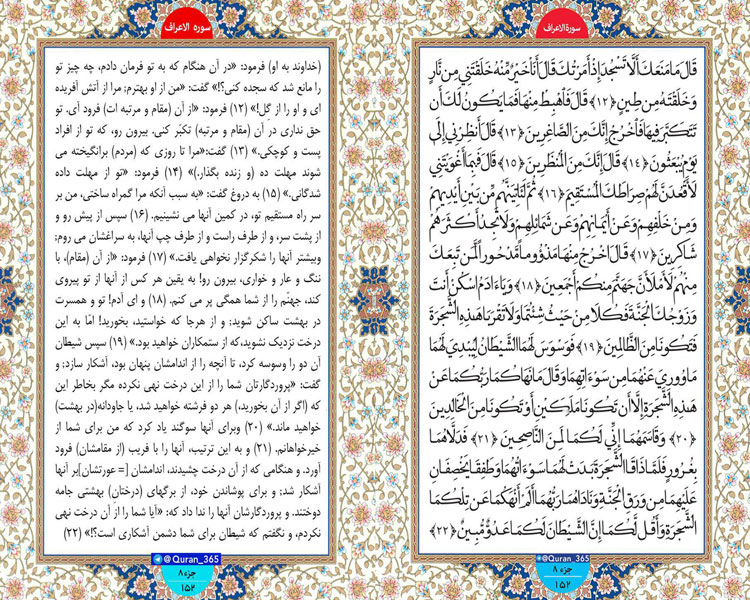 سورة الاعراف
قَالَ مَا مَنَعَكَ أَلَّا تَسْجُدَ إِذْ أَمَرْتُكَ قَالَ أَنَا خَيْرٌ مِّنْهُ خَلَقْتَنِي مِن نَّارٍ
وَخَلَقْتَهُ مِن طِينٍ ﴿۱۲﴾ قَالَ فَاهْبِطْ مِنْهَا فَمَا يَكُونُ لَكَ أَن
تَتَكَبَّرَ فِيهَا فَاخْرُجْ إِنَّكَ مِنَ الصَّاغِرِينَ ﴿۱۳﴾ قَالَ أَنظِرْنِي إِلَىٰ
يَوْمِ يُبْعَثُونَ ﴿۱۴﴾ قَالَ إِنَّكَ مِنَ الْمُنظَرِينَ ﴿۱۵﴾ قَالَ فَبِمَا أَغْوَيْتَنِي
لَأَقْعُدَنَّ لَهُمْ صِرَاطَكَ الْمُسْتَقِيمَ ﴿۱۶﴾ ثُمَّ لَآتِيَنَّهُم مِّن بَيْنِ أَيْدِيهِمْ
وَمِنْ خَلْفِهِمْ وَعَنْ أَيْمَانِهِمْ وَعَن شَمَائِلِهِمْ وَلَا تَجِدُ أَكْثَرَهُمْ
شَاكِرِينَ ﴿۱۷﴾ قَالَ اخْرُجْ مِنْهَا مَذْءُومًا مَّدْحُورًا لَّمَن تَبِعَكَ
مِنْهُمْ لَأَمْلَأَنَّ جَهَنَّمَ مِنكُمْ أَجْمَعِينَ ﴿۱۸﴾ وَيَا آدَمُ اسْكُنْ أَنتَ
وَزَوْجُكَ الْجَنَّةَ فَكُلَا مِنْ حَيْثُ شِئْتُمَا وَلَا تَقْرَبَا هَٰذِهِ الشَّجَرَةَ
فَتَكُونَا مِنَ الظَّالِمِينَ ﴿۱۹﴾ فَوَسْوَسَ لَهُمَا الشَّيْطَانُ لِيُبْدِيَ لَهُمَا
مَا وُورِيَ عَنْهُمَا مِن سَوْءَاتِهِمَا وَقَالَ مَا نَهَاكُمَا رَبُّكُمَا عَنْ
هَٰذِهِ الشَّجَرَةِ إِلَّا أَن تَكُونَا مَلَكَيْنِ أَوْ تَكُونَا مِنَ الْخَالِدِينَ
﴿۲۰﴾ وَقَاسَمَهُمَا إِنِّي لَكُمَا لَمِنَ النَّاصِحِينَ ﴿۲۱﴾ فَدَلَّاهُمَا
بِغُرُورٍ فَلَمَّا ذَاقَا الشَّجَرَةَ بَدَتْ لَهُمَا سَوْءَاتُهُمَا وَطَفِقَا يَخْصِفَانِ
عَلَيْهِمَا مِن وَرَقِ الْجَنَّةِ وَنَادَاهُمَا رَبُّهُمَا أَلَمْ أَنْهَكُمَا عَن تِلْكُمَا
الشَّجَرَةِ وَأَقُل لَّكُمَا إِنَّ الشَّيْطَانَ لَكُمَا عَدُوٌّ مُّبِينٌ ﴿۲۲﴾
@Quran_365
جزء ۸
۱۵۲
سوره الاعراف
(خداوند به او) فرمود: «در آن هنگام که به تو فرمان دادم، چه چیز تو
را مانع شد که سجده کنی؟!» گفت: «من از او بهترم؛ مرا از آتش آفریده
ای و او را از گل!» (۱۲) فرمود: «از آن (مقام و مرتبه ات) فرود آی. تو
حق نداری در آن (مقام و مرتبه) تکبّر کنی. بیرون رو، که تو از افراد
پست و کوچکی.» (۱۳) گفت:«مرا تا روزی که (مردم) برانگیخته می
شوند مهلت ده (و زنده بگذار).» (۱۴) فرمود: «تو از مهلت داده
شدگانی.» (۱۵) به دروغ گفت: «به سبب آنکه مرا گمراه ساختی، من بر
سر راه مستقیم تو، در کمین آنها می نشینیم. (۱۶) سپس از پیش رو و
از پشت سر، و از طرف راست و از طرف چپ آنها، به سراغشان می روم؛
وبیشتر آنها را شکرگزار نخواهی یافت.» (۱۷) فرمود: «از آن (مقام)، با
ننگ و عار و خواری، بیرون رو! به یقین هر کس از آنها از تو پیروی
کند، جهنّم را از شما همگی پر می کنم. (۱۸) و ای آدم! تو و همسرت
در بهشت ساکن شوید: و از هرجا که خواستید، بخورید! امّا به این
درخت نزدیک نشوید،که از ستمکاران خواهید بود.» (۱۹) سپس شیطان
آن دو را وسوسه کرد، تا آنچه را از اندامشان پنهان بود، آشکار سازد؛ و
گفت: «پروردگارتان شما را از این درخت نهی نکرده مگر بخاطر این
که (اگر از آن بخورید،) هر دو فرشته خواهید شد، یا جاودانه(در بهشت)
خواهید ماند.» (۲۰) وبرای آنها سوگند یاد کرد که من برای شما از
خیرخواهانم. (۲۱) و به این ترتیب، آنها را با فریب (از مقامشان) فرود
آورد. و هنگامی که از آن درخت چشیدند، اندامشان [= عورتشان]بر آنها
آشکار شد؛ و برای پوشاندن خود، از برگهای (درختان) بهشتی جامه
دوختند. و پروردگارشان آنها را ندا داد که: «آیا شما را از آن درخت نهی
نکردم، و نگفتم که شیطان برای شما دشمن آشکاری است؟!» (۲۲)
@Quran_365
جزء ۸
۱۵۲